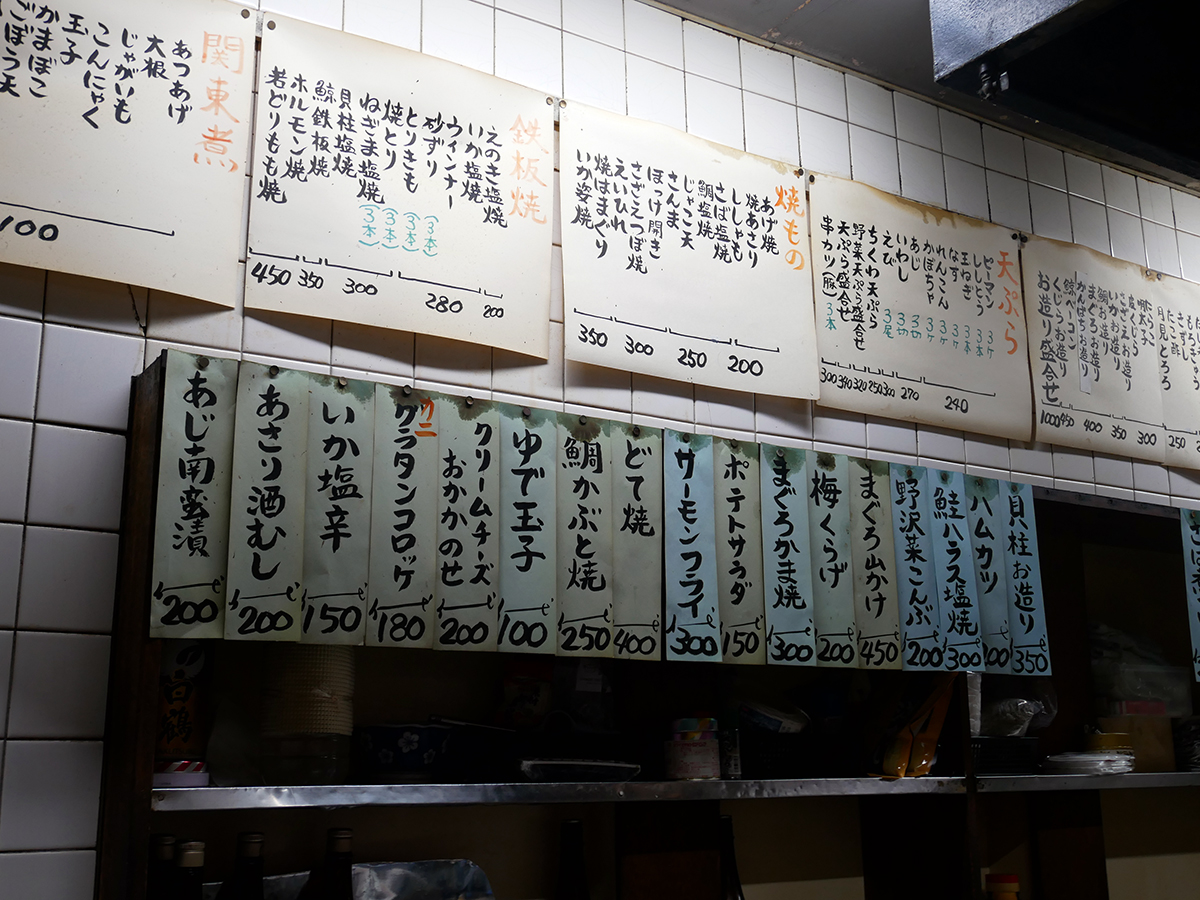 関東煮
あつあげ
大根
じゃがいも
こんにゃく
玉子
かまぼこ
ごぼう天
100
鉄板焼
えのき塩焼
いか塩焼
ウィンナー
砂ずり (3本)
とりきも (3本)
焼とり (3本)
ねぎま塩焼 (3本)
貝柱塩焼
鯨鉄板焼
ホルモン焼
若どりもも焼
450 350 300 280 200
焼もの
あげ焼
焼あさり
ししゃも
さば塩焼
鯛塩焼
じゃこ天
さんま
ほっけ開き
さざえつぼ焼
えいひれ
焼はまぐり
いか姿焼
350 300 250 200
天ぷら
ピーマン 3ヶ
ししとう 3本
玉ねぎ 3本
なす 3ヶ
れんこん 3ヶ
かぼちゃ 3ヶ
あじ 3切
いわし 3切
えび 3尾
ちくわ天ぷら
野菜天ぷら盛合せ
天ぷら盛合せ
串カツ(豚) 3本
300 390 320 250 300 270 240
月見とろろ
明太子
皮くじら
さざえお造り
いかお造り
鯛お造り
まぐろお造り
かんぱちお造り
鯨ベーコン
くじらお造り
お造り盛合せ
1000 450 400 350 300 250
あじ南蛮漬 200
あさり酒むし 200
いか塩辛 150
カニグラタンコロッケ 180
クリームチーズおかかのせ 200
ゆで玉子 100
鯛かぶと焼 250
どて焼 400
サーモンフライ 300
ポテトサラダ 150
まぐろかま焼 300
梅くらげ 200
まぐろ山かけ 450
野沢菜こんぶ 200
鮭ハラス塩焼 300
ハムカツ
貝柱お造り 350
白鶴